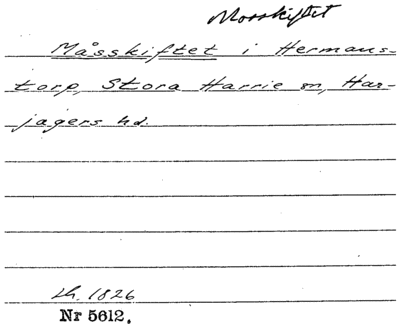 Mosskiftet
Måsskiftet i Hermans-
torp, Stora Harrie sn, Har-
jagers hd.
Lh. 1826
Nr 5612.